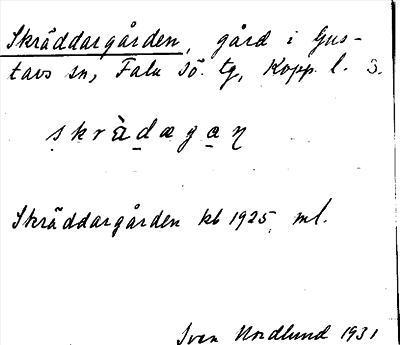 Skräddargården, gård i Gus-
tavs sn, Falu Sö. tg, Kopp. l. S.
skrädagan
Skräddargården kb 1925, ml.
Sven Nordlund 1931